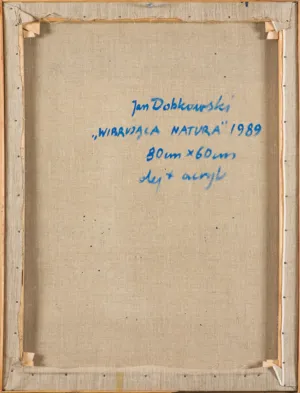 Jan Dobkowski
„WIBRUJĄCA NATURA" 1989
80cm x 60cm
olej + acryl